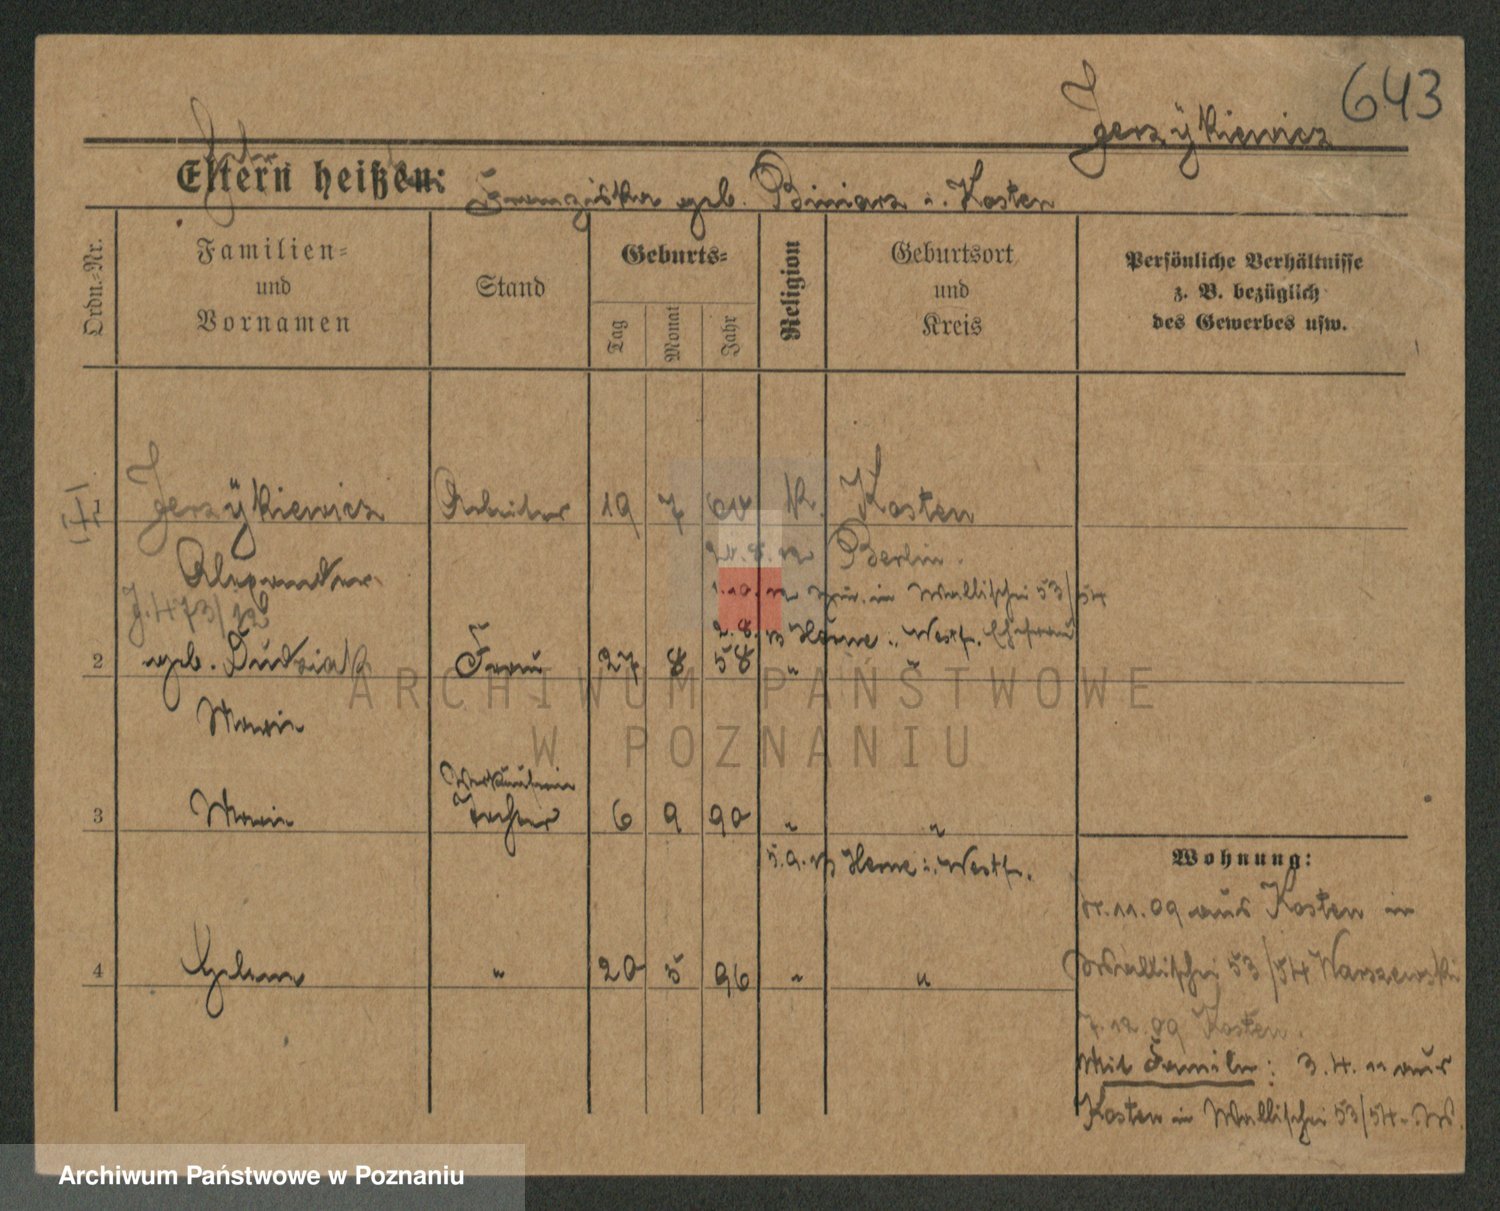 643
Jerzÿkiewicz
Eltern heißen:
Franziska geb. Biniarz i. Kosten
Ordn.-Nr.
Familien-
und
Vornamen
Stand
Geburts-
Tag
Monat
Jahr
Religion
Geburtsort
und
Kreis
Persönliche Verhältnisse
z. B. bezüglich
des Gewerbes usw.
1 Jerzÿkiewicz Arbeiter 19 7 60 K. Kosten
Alexander
Berlin.
J. 473/12
in Wallischei 53/54
2. 8. 13 Herne i. Westf. Ehefrau
2 geb. Dudziak Frau 27 8 58 "
Maria
Verkäuferin
3 Maria Tochter 6 9 90 " "
5. 9. 13 Herne i. Westf.
4 Helene " 20 5 96 " "
Wohnung:
11. 09 aus Kosten in
Wallischei 53/54 Warszewski
7. 12. 09 Kosten.
Mit Familie: 3. 4. 11 aus
Kosten in Wallischei 53/54 W.
ARCHIWUM PAŃSTWOWE
W POZNANIU
Archiwum Państwowe w Poznaniu